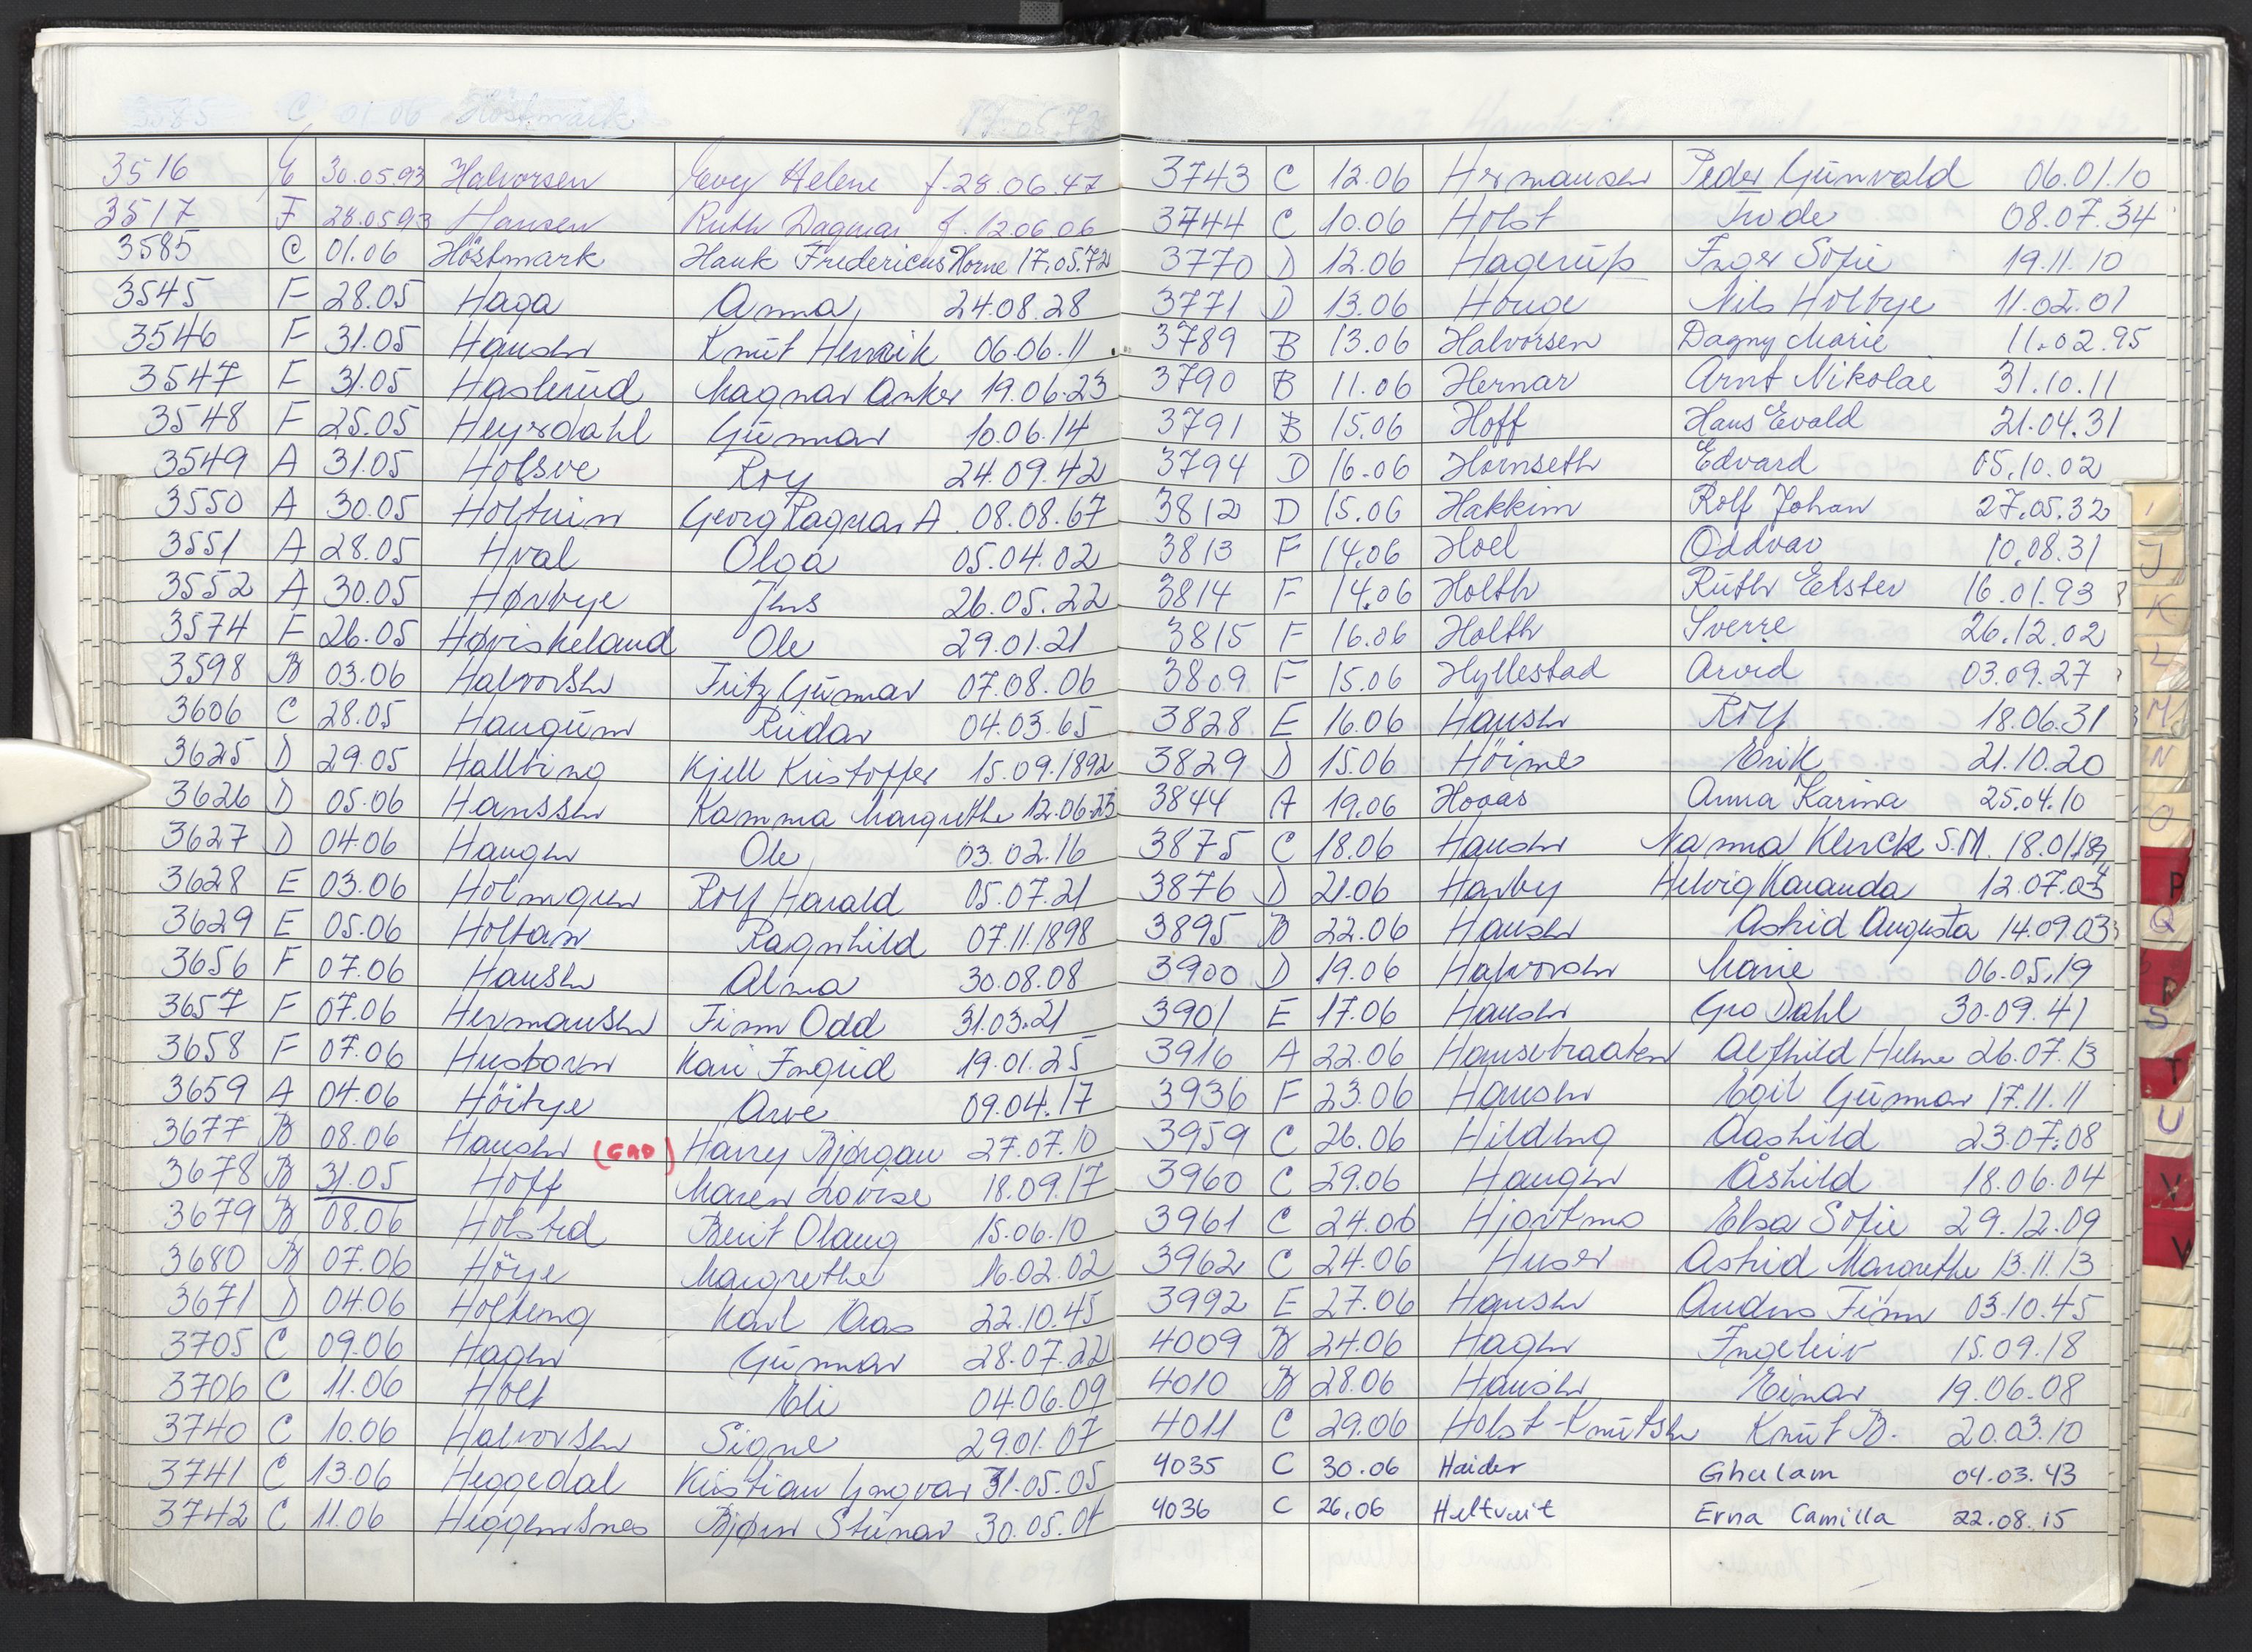 3585 C 01.06 Höstmark 17.05.72
3516 E 30.05.93 Halvorsen Evy Helene f. 28.06.47
3517 F 28.05.93 Hansen Ruth Dagmar f. 12.06.06
3585 C 01.06 Höstmark Hauk Fredericus Horne 17.05.72
3545 F 28.05 Haga Anna 24.08.28
3546 F 31.05 Hansen Knut Henrik 06.06.11
3547 F 31.05 Haslerud Magnar Anker 19.06.23
3548 F 25.05 Heyerdahl Gunnar 10.06.14
3549 A 31.05 Holsve Roy 24.09.42
3550 A 30.05 Holtein Georg Ragnar A. 08.08.67
3551 A 28.05 Hval Olga 05.04.02
3552 A 30.05 Hørbye Jens 26.05.22
3574 F 26.05 Høviskeland Ole 29.01.21
3598 B 03.06 Halvorsen Fritz Gunnar 07.08.06
3606 C 28.05 Haugum Reidar 04.03.65
3625 D 29.05 Hallbing Kjell Kristoffer 15.09.1892
3626 D 05.06 Hanssen Kamma Margrethe 12.06.23
3627 D 04.06 Haugen Ole 03.02.16
3628 E 03.06 Holmgren Rolf Harald 05.07.21
3629 E 05.06 Holtan Ragnhild 07.11.1898
3656 F 07.06 Hansen Alma 30.08.08
3657 F 07.06 Hermansen Finn Odd 31.03.21
3658 F 07.06 Husboren Kari Ingrid 19.01.25
3659 A 04.06 Höibye Arve 09.04.17
3677 B 08.06 Hansen (GAD) Harry Bjørgan 27.07.10
3678 B 31.05 Hoff Maren Lovise 18.09.17
3679 B 08.06 Holsted Berit Olaug 15.06.10
3680 B 07.06 Höye Margrethe 16.02.02
3671 D 04.06 Holteng Karl Aas 22.10.45
3705 C 09.06 Hagen Gunnar 28.07.22
3706 C 11.06 Holt Eli 04.06.09
3740 C 10.06 Halvorsen Signe 29.01.07
3741 C 13.06 Heggedal Kristian Yngvar 31.05.05
3742 C 11.06 Heggensnes Bjørn Steinar 30.05.01
3743 C 12.06 Hermansen Peder Gunvald 06.01.10
3744 C 10.06 Holst Frode 08.07.34
3770 D 12.06 Hagerup Inger Sofie 19.11.10
3771 D 13.06 Houge Nils Holbye 11.02.01
3789 B 13.06 Halvorsen Dagny Marie 11.02.95
3790 B 11.06 Hernar Arnt Nikolai 31.10.11
3791 B 15.06 Hoff Hans Evald 21.04.31
3794 D 16.06 Hornseth Edvard 05.10.02
3812 D 15.06 Hakkim Rolf Johan 27.05.32
3813 F 14.06 Hoel Oddvar 10.08.31
3814 F 14.06 Holth Ruth Elster 16.01.93
3815 F 16.06 Holth Sverre 26.12.02
3809 F 15.06 Hyllestad Arvid 03.09.27
3828 E 16.06 Hansen Rolf 18.06.31
3829 D 15.06 Höines Erik 21.10.20
3844 A 19.06 Hovas Anna Karina 25.04.10
3875 C 18.06 Hansen Nanna Klenck S.M. 18.01.
3876 D 21.06 Harby Helvig Karanda 12.07.03
3895 B 22.06 Hansen Astrid Augusta 14.09.03
3900 D 19.06 Halvorsen Marie 06.05.19
3901 E 17.06 Hansen Gro Dahl 30.09.41
3916 A 22.06 Hansebraaten Alfhild Helene 26.07.13
3936 F 23.06 Hansen Egil Gunnar 17.11.11
3959 C 26.06 Hildeng Aashild 23.07.08
3960 C 29.06 Haugen Åshild 18.06.04
3961 C 24.06 Hjortmo Elsa Sofie 29.12.09
3962 C 24.06 Huser Astrid Margrethe 13.11.13
3992 E 27.06 Hansen Anders Finn 03.10.45
4009 B 24.06 Hagen Ingeleiv 15.09.18
4010 B 28.06 Hansen Einar 19.06.08
4011 C 29.06 Holst-Knutsen Knut B. 20.03.10
4035 C 30.06 Haider Ghulam 04.03.43
4036 C 26.06 Heltveit Erna Camilla 22.08.15
J
K
L
M
N
O
P
Q
R
S
T
U
V